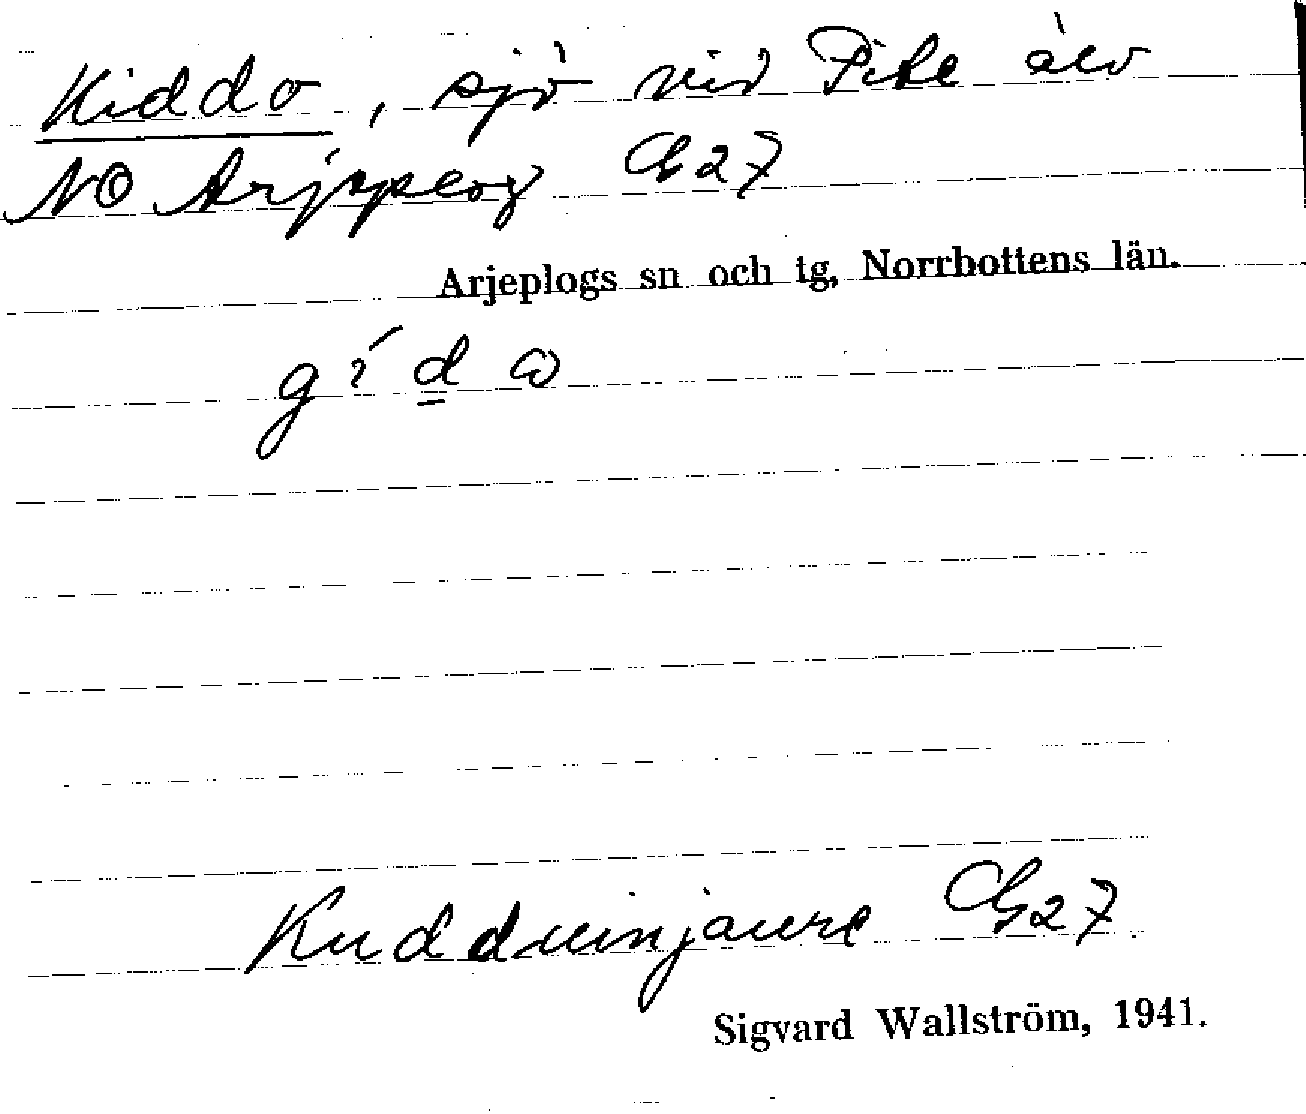 Kiddo, sjö vid Pite älv
NO Arjeplog G27
Arjeplogs sn och tg, Norrbottens län.
gídω
Kudduinjaure G27
Sigvard Wallström, 1941.